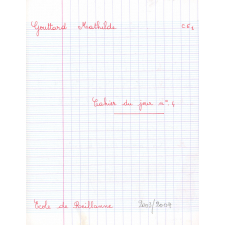 Gouttard Mathilde CE2
Cahier du jour n° 4
Ecole de Reillanne 2003/2004